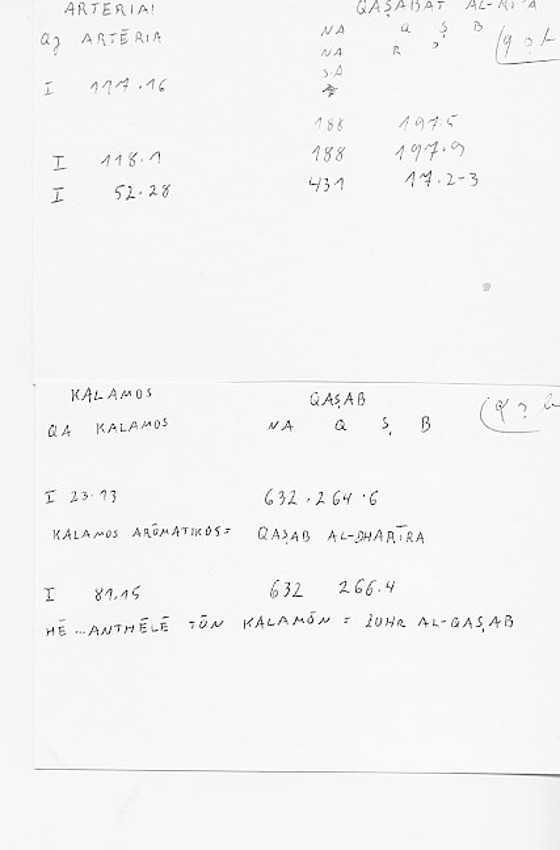 ARTERIAI QAṢABAT AL-RI'A
Qz ARTĒRIA NA Q Ṣ B
NA R ʾ
I 117.16 S.A
188 197.5
I 118.1 188 197.9
I 52.28 431 17.2-3
KALAMOS QAṢAB
QA KALAMOS NA Q Ṣ B
I 23.13 632.264.6
KALAMOS ARŌMATIKOS = QAṢAB AL-DHARĪRA
I 81.15 632 266.4
HĒ ...ANTHĒLĒ TŌN KALAMŌN = ZUHR AL-QAṢAB